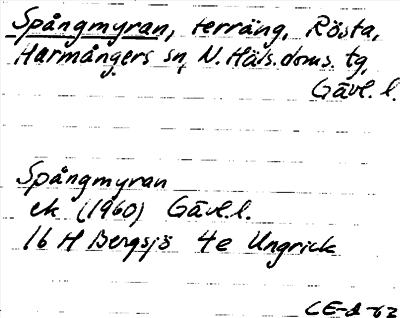 Spångmyran, terräng, Rösta,
Harmångers sn, N. Häls. doms. tg,
Gävl. l.
Spångmyran
ek (1960) Gävl. l.
16 H Bergsjö 4e Ungrick